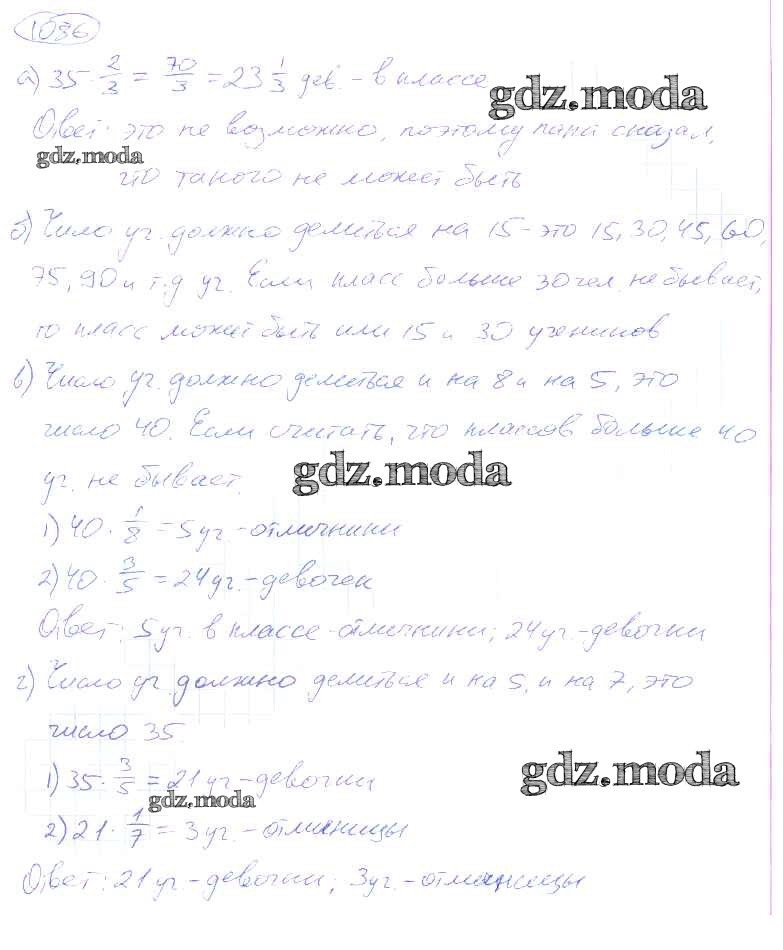 1086
а) 35 · 2/3 = 70/3 = 23 1/3 дев. - в классе
gdz.moda
Ответ: это не возможно, поэтому папа сказал,
gdz.moda
что такого не может быть
б) Число уч. должно делиться на 15 - это 15, 30, 45, 60,
75, 90 и т.д уч. Если класс больше 30 чел. не бывает,
то класс может быть или 15 и 30 учеников
в) Число уч. должно делиться и на 8 и на 5, это
число 40. Если считать, что классов больше 40
уч. не бывает.
gdz.moda
1) 40 · 1/8 = 5 уч. - отличники
2) 40 · 3/5 = 24 уч. - девочек
Ответ: 5 уч. в классе - отличники; 24 уч. - девочки
г) Число уч. должно делиться и на 5, и на 7, это
число 35.
1) 35 · 3/5 = 21 уч - девочки
gdz.moda
gdz.moda
2) 21 · 1/7 = 3 уч. - отличницы
Ответ: 21 уч - девочки; 3 уч. - отличницы